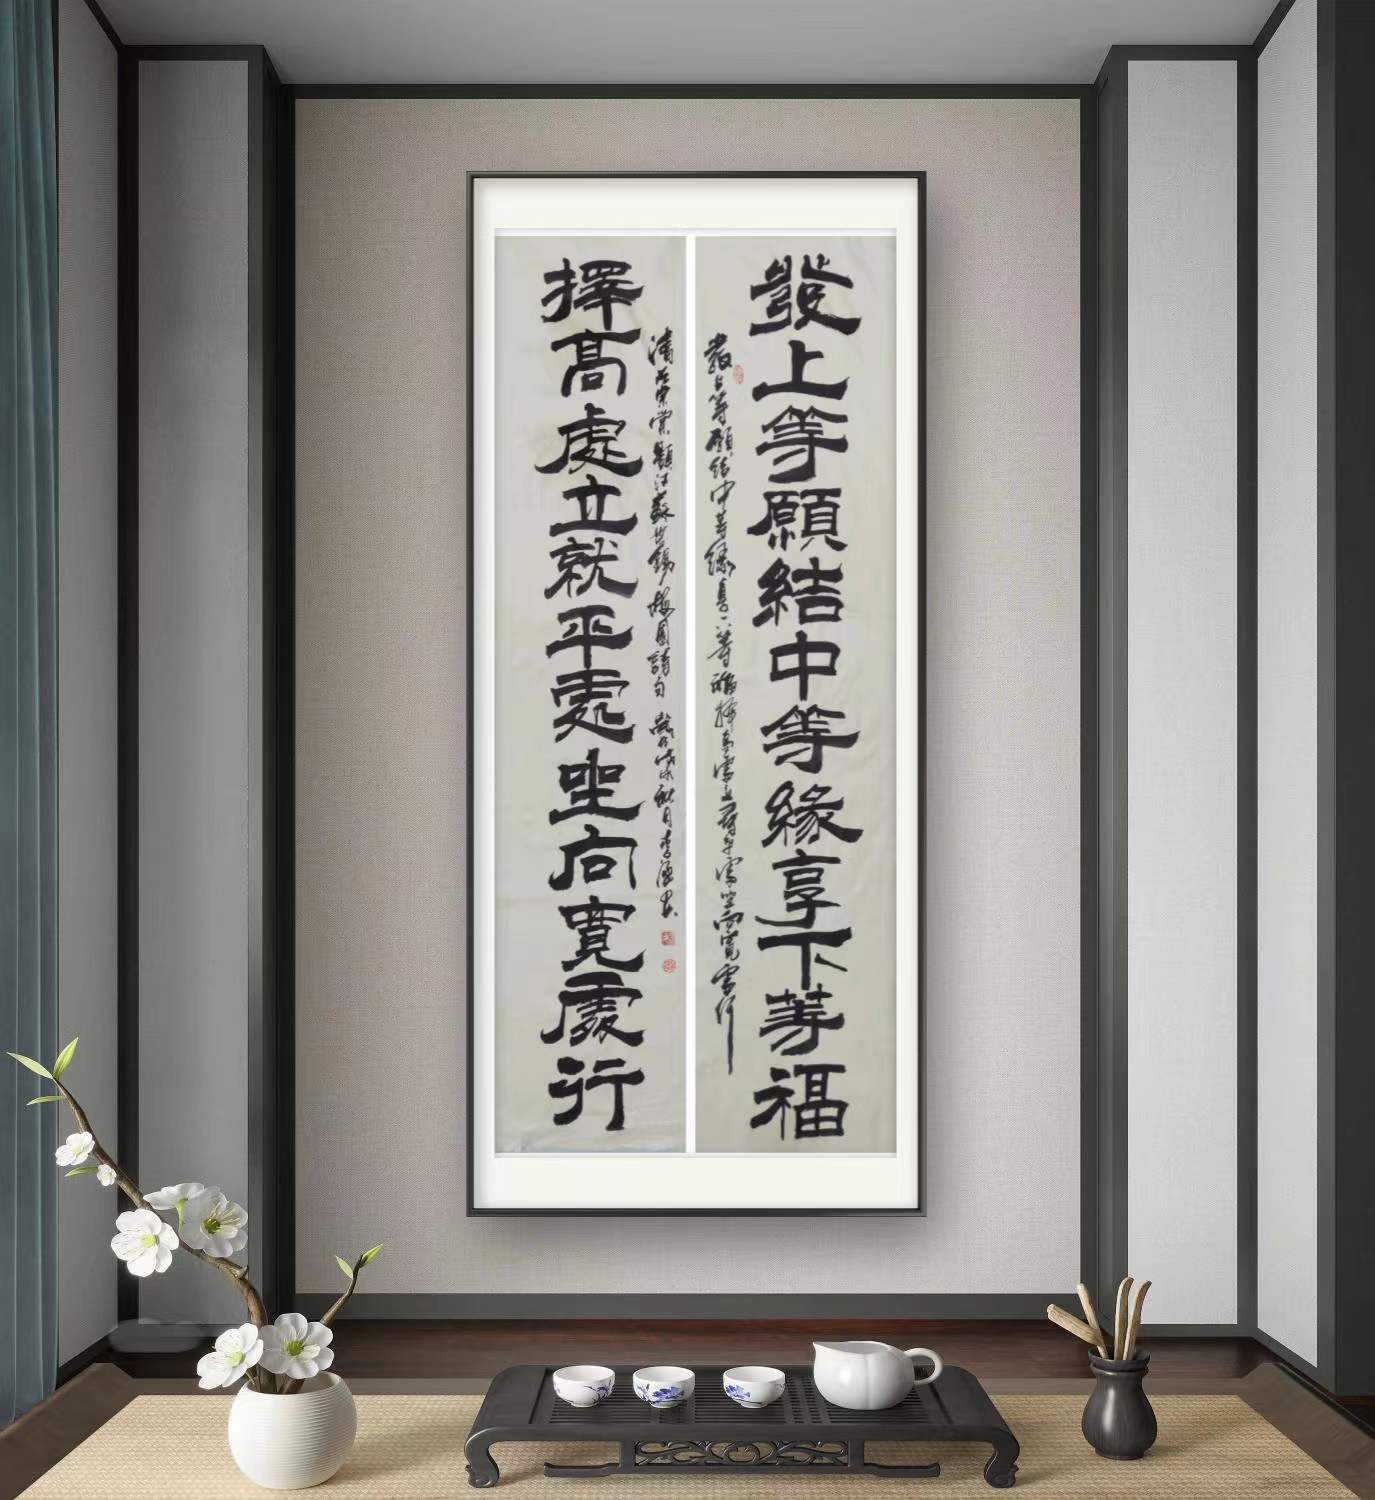 發上等願結中等緣享下等福
發上等願結中等緣享下等福擇高處立尋平處坐向寬處行
清左宗棠題江蘇無錫梅園詩句 戊戌秋月李
擇高處立就平處坐向寬處行